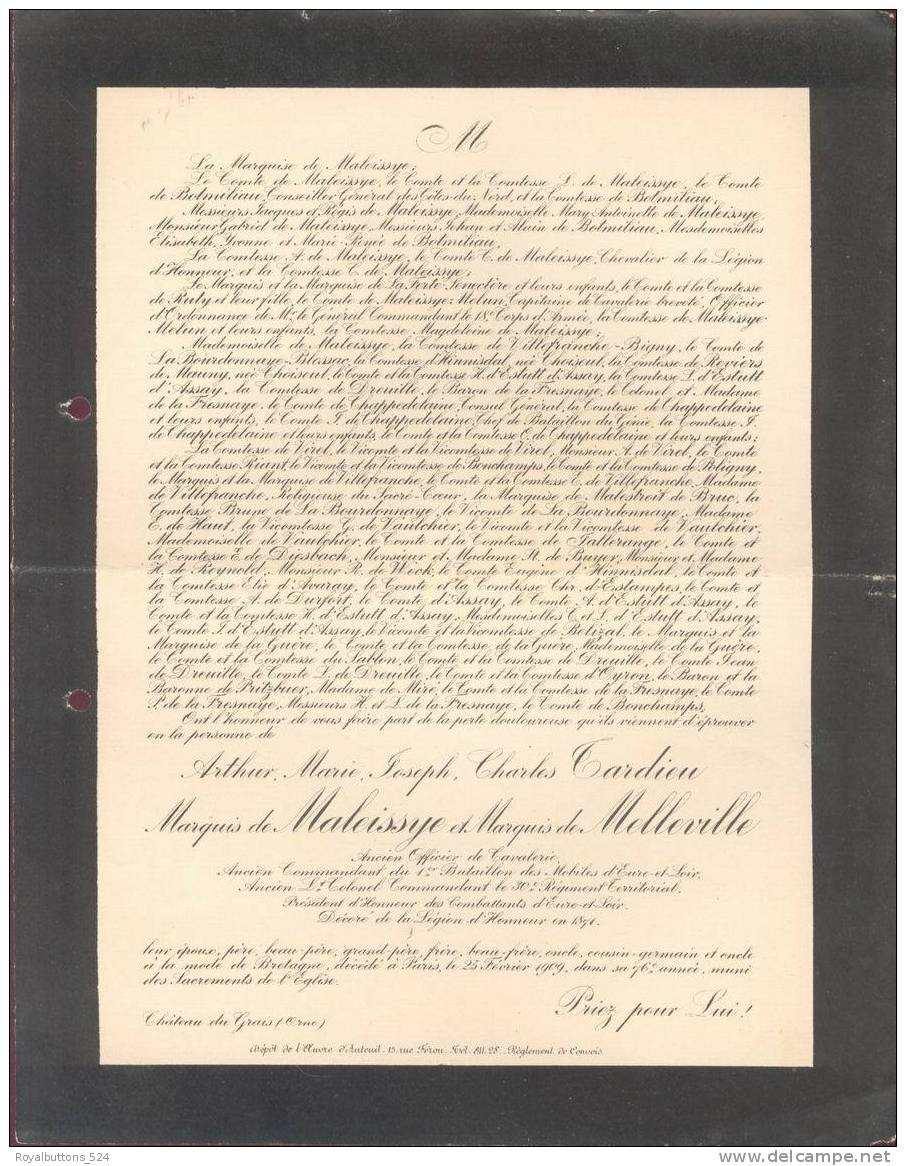 M
La Marquise de Maleissye;
Le Comte de Maleissye, le Comte et la Comtesse L. de Maleissye, le Comte
de Bolmiliau, Conseiller Général des Côtes-du-Nord, et la Comtesse de Bolmiliau,
Messieurs Jacques et Régis de Maleissye, Mademoiselle Mary-Antoinette de Maleissye,
Monsieur Gabriel de Maleissye, Messieurs Jehan et Alain de Botmiliau, Mesdemoiselles
Elisabeth, Yvonne et Marie-Renée de Botmiliau,
La Comtesse A. de Maleissye, le Comte C. de Maleissye, Chevalier de la Légion
d'Honneur, et la Comtesse C. de Maleissye;
Le Marquis et la Marquise de La Ferté-Senectère et leurs enfants, le Comte et la Comtesse
de Ruty et leur fille, le Comte de Maleissye-Melun, Capitaine de Cavalerie breveté, Officier
d'Ordonnance de Mr. le Général Commandant le 18e Corps d'Armée, la Comtesse de Maleissye-
Melun et leurs enfants, la Comtesse Magdeleine de Maleissye;
Mademoiselle de Maleissye, la Comtesse de Villefranche-Bigny, le Comte de
La Bourdonnaye-Blossac, la Comtesse d'Hinnisdal, née Choiseul, la Comtesse de Reviers
de Mauny, née Choiseul, le Comte et la Comtesse H. d'Estutt d'Assay, la Comtesse L. d'Estutt
d'Assay, la Comtesse de Dreuille, le Baron de la Fresnaye, le Colonel et Madame
de la Fresnaye, le Comte de Chappedelaine, Consul Général, la Comtesse de Chappedelaine
et leurs enfants, le Comte J. de Chappedelaine, Chef de Bataillon du Génie, la Comtesse J.
de Chappedelaine et leurs enfants, le Comte et la Comtesse O. de Chappedelaine et leurs enfants;
La Comtesse de Virel, le Vicomte et la Vicomtesse de Virel, Monsieur A. de Virel, le Comte
et la Comtesse Riant, le Vicomte et la Vicomtesse de Bonchamps, le Comte et la Comtesse de Poligny,
le Marquis et la Marquise de Villefranche, le Comte et la Comtesse C. de Villefranche, Madame
de Villefranche, Religieuse du Sacré-Cœur, la Marquise de Malestroit de Bruc, la
Comtesse Bruno de La Bourdonnaye, le Vicomte de La Bourdonnaye, Madame
E. de Haut, la Vicomtesse G. de Vaulchier, le Vicomte et la Vicomtesse de Vaulchier,
Mademoiselle de Vaulchier, le Comte et la Comtesse de Jallerange, le Comte et
la Comtesse E. de Diesbach, Monsieur et Madame St. de Buyer, Monsieur et Madame
H. de Reynold, Monsieur R. de Weck, le Comte Eugène d'Hinnisdal, le Comte et
la Comtesse Elie d'Avaray, le Comte et la Comtesse Chr. d'Estampes, le Comte et
la Comtesse A. de Durfort, le Comte d'Assay, le Comte A. d'Estutt d'Assay, le
Comte et la Comtesse H. d'Estutt d'Assay, Mesdemoiselles C. et L. d'Estutt d'Assay,
le Comte J. d'Estutt d'Assay, le Vicomte et la Vicomtesse de Betizal, le Marquis et la
Marquise de la Guère, le Comte et la Comtesse de la Guère, Mademoiselle de la Guère,
le Comte et la Comtesse du Sablon, le Comte et la Comtesse de Dreuille, le Comte Jean
de Dreuille, le Comte L. de Dreuille, le Comte et la Comtesse d'Oyron, le Baron et la
Baronne de Pritzbuer, Madame de Miré, le Comte et la Comtesse de la Fresnaye, le Comte
P. de la Fresnaye, Messieurs H. et L. de la Fresnaye, le Comte de Bonchamps,
Ont l'honneur de vous faire part de la perte douloureuse qu'ils viennent d'éprouver
en la personne de
Arthur, Marie, Joseph, Charles Tardieu
Marquis de Maleissye et Marquis de Melleville
Ancien Officier de Cavalerie,
Ancien Commandant du 1er Bataillon des Mobiles d'Eure-et-Loir,
Ancien Lt Colonel Commandant le 30e Régiment Territorial,
Président d'Honneur des Combattants d'Eure-et-Loir,
Décoré de la Légion d'Honneur en 1871,
leur époux, père, beau-père, grand-père, frère, beau-frère, oncle, cousin-germain et oncle
à la mode de Bretagne, décédé à Paris, le 25 Février 1909, dans sa 76e année, muni
des Sacrements de l'Eglise.
Priez pour Lui!
Château du Grais (Orne)
Dépôt de l'Œuvre d'Auteuil. 15, rue Féron. Tél. 811.28. Règlement de Convois.
Royalbuttons_524
www.delcampe.net